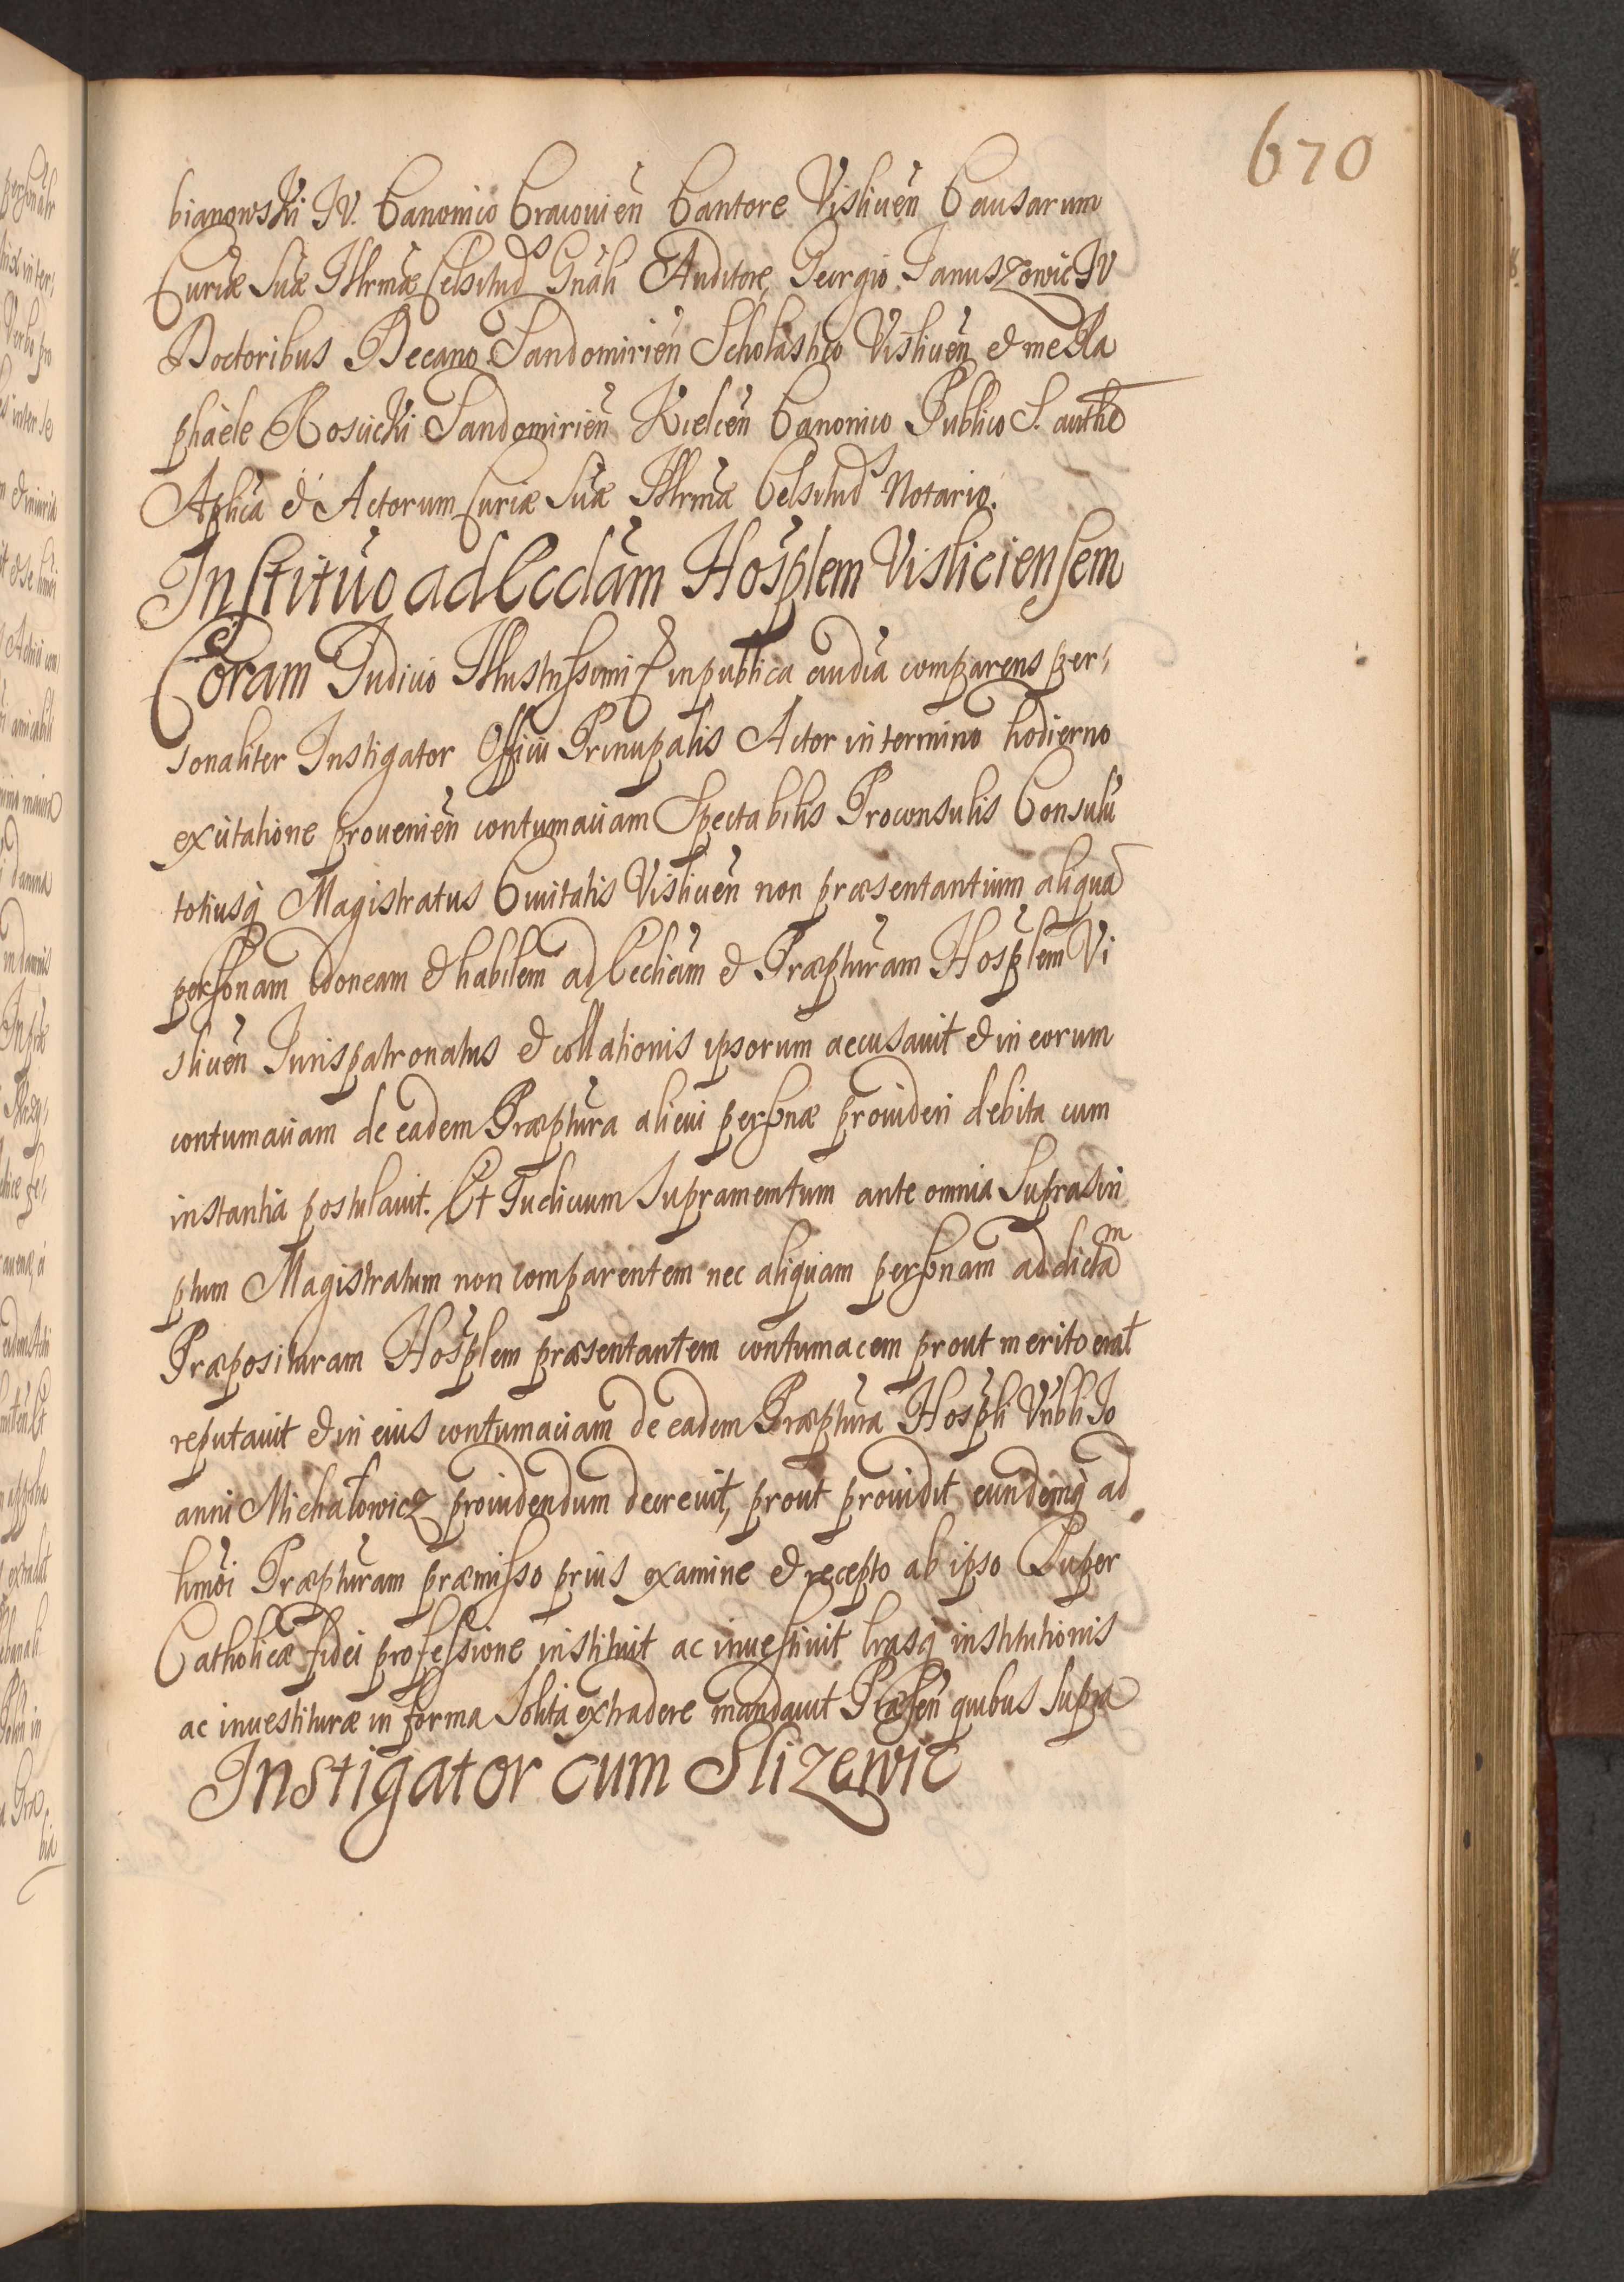 670
bianowski IV. Canonico Cracovien̄ Cantore Visliciēn Causarum
Curiæ Suæ Illrmæ Celsitud̄s Gnāli Auditore, Georgio Januszowic IV
Doctoribus Decano Sandomiriēn Scholastico Visliciēn et me Ra
phaele Rosicki Sandomiriēn Kielcēn Canonico Publico S. autht̄e
Aplica et Actorum Curiæ Suæ Illrmæ Celsitud̄s Notario.
Institūo ad Ecclām Hosp̄lem Visliciensem
Coram Judicio Illustrissimi & in publica audīa comparens per,,
sonaliter Instigator Officii Principalis Actor in termino hodierno
ex citatione proveniēn contumaciam Spectabilis Proconsulis Consulū
totiusq̄ Magistratus Civitatis Visliciēn non præsentantium aliquā
personam idoneam et habilem ad Ecclīam et Præptūram Hosp̄lem Vi
sliciēn Jurispatronatus et collationis ipsorum accusavit et in eorum
contumaciam de eadem Præptūra alicui personæ provideri debita cum
instantia postulavit. Et Judicium Supramemtum ante omnia Suprascri
ptum Magistratum non comparentem nec aliquam personam ad dictam
Præposituram Hosp̄lem præsentantem contumacem prout merito erat
reputavit et in eius contumaciam de eadem Præptūra Hosp̄li Vnbli Jo
anni Michałowicz providendum decrevit, prout providit eundemq̄ ad
hmōi Præptūram præmisso prius examine et recepto ab ipso Super
Catholicæ fidei professione instituit ac investivit lrasq̄ institutionis
ac investituræ in forma Solita extradere mandavit Præsēn quibus Supra
Instigator cum Slizewic